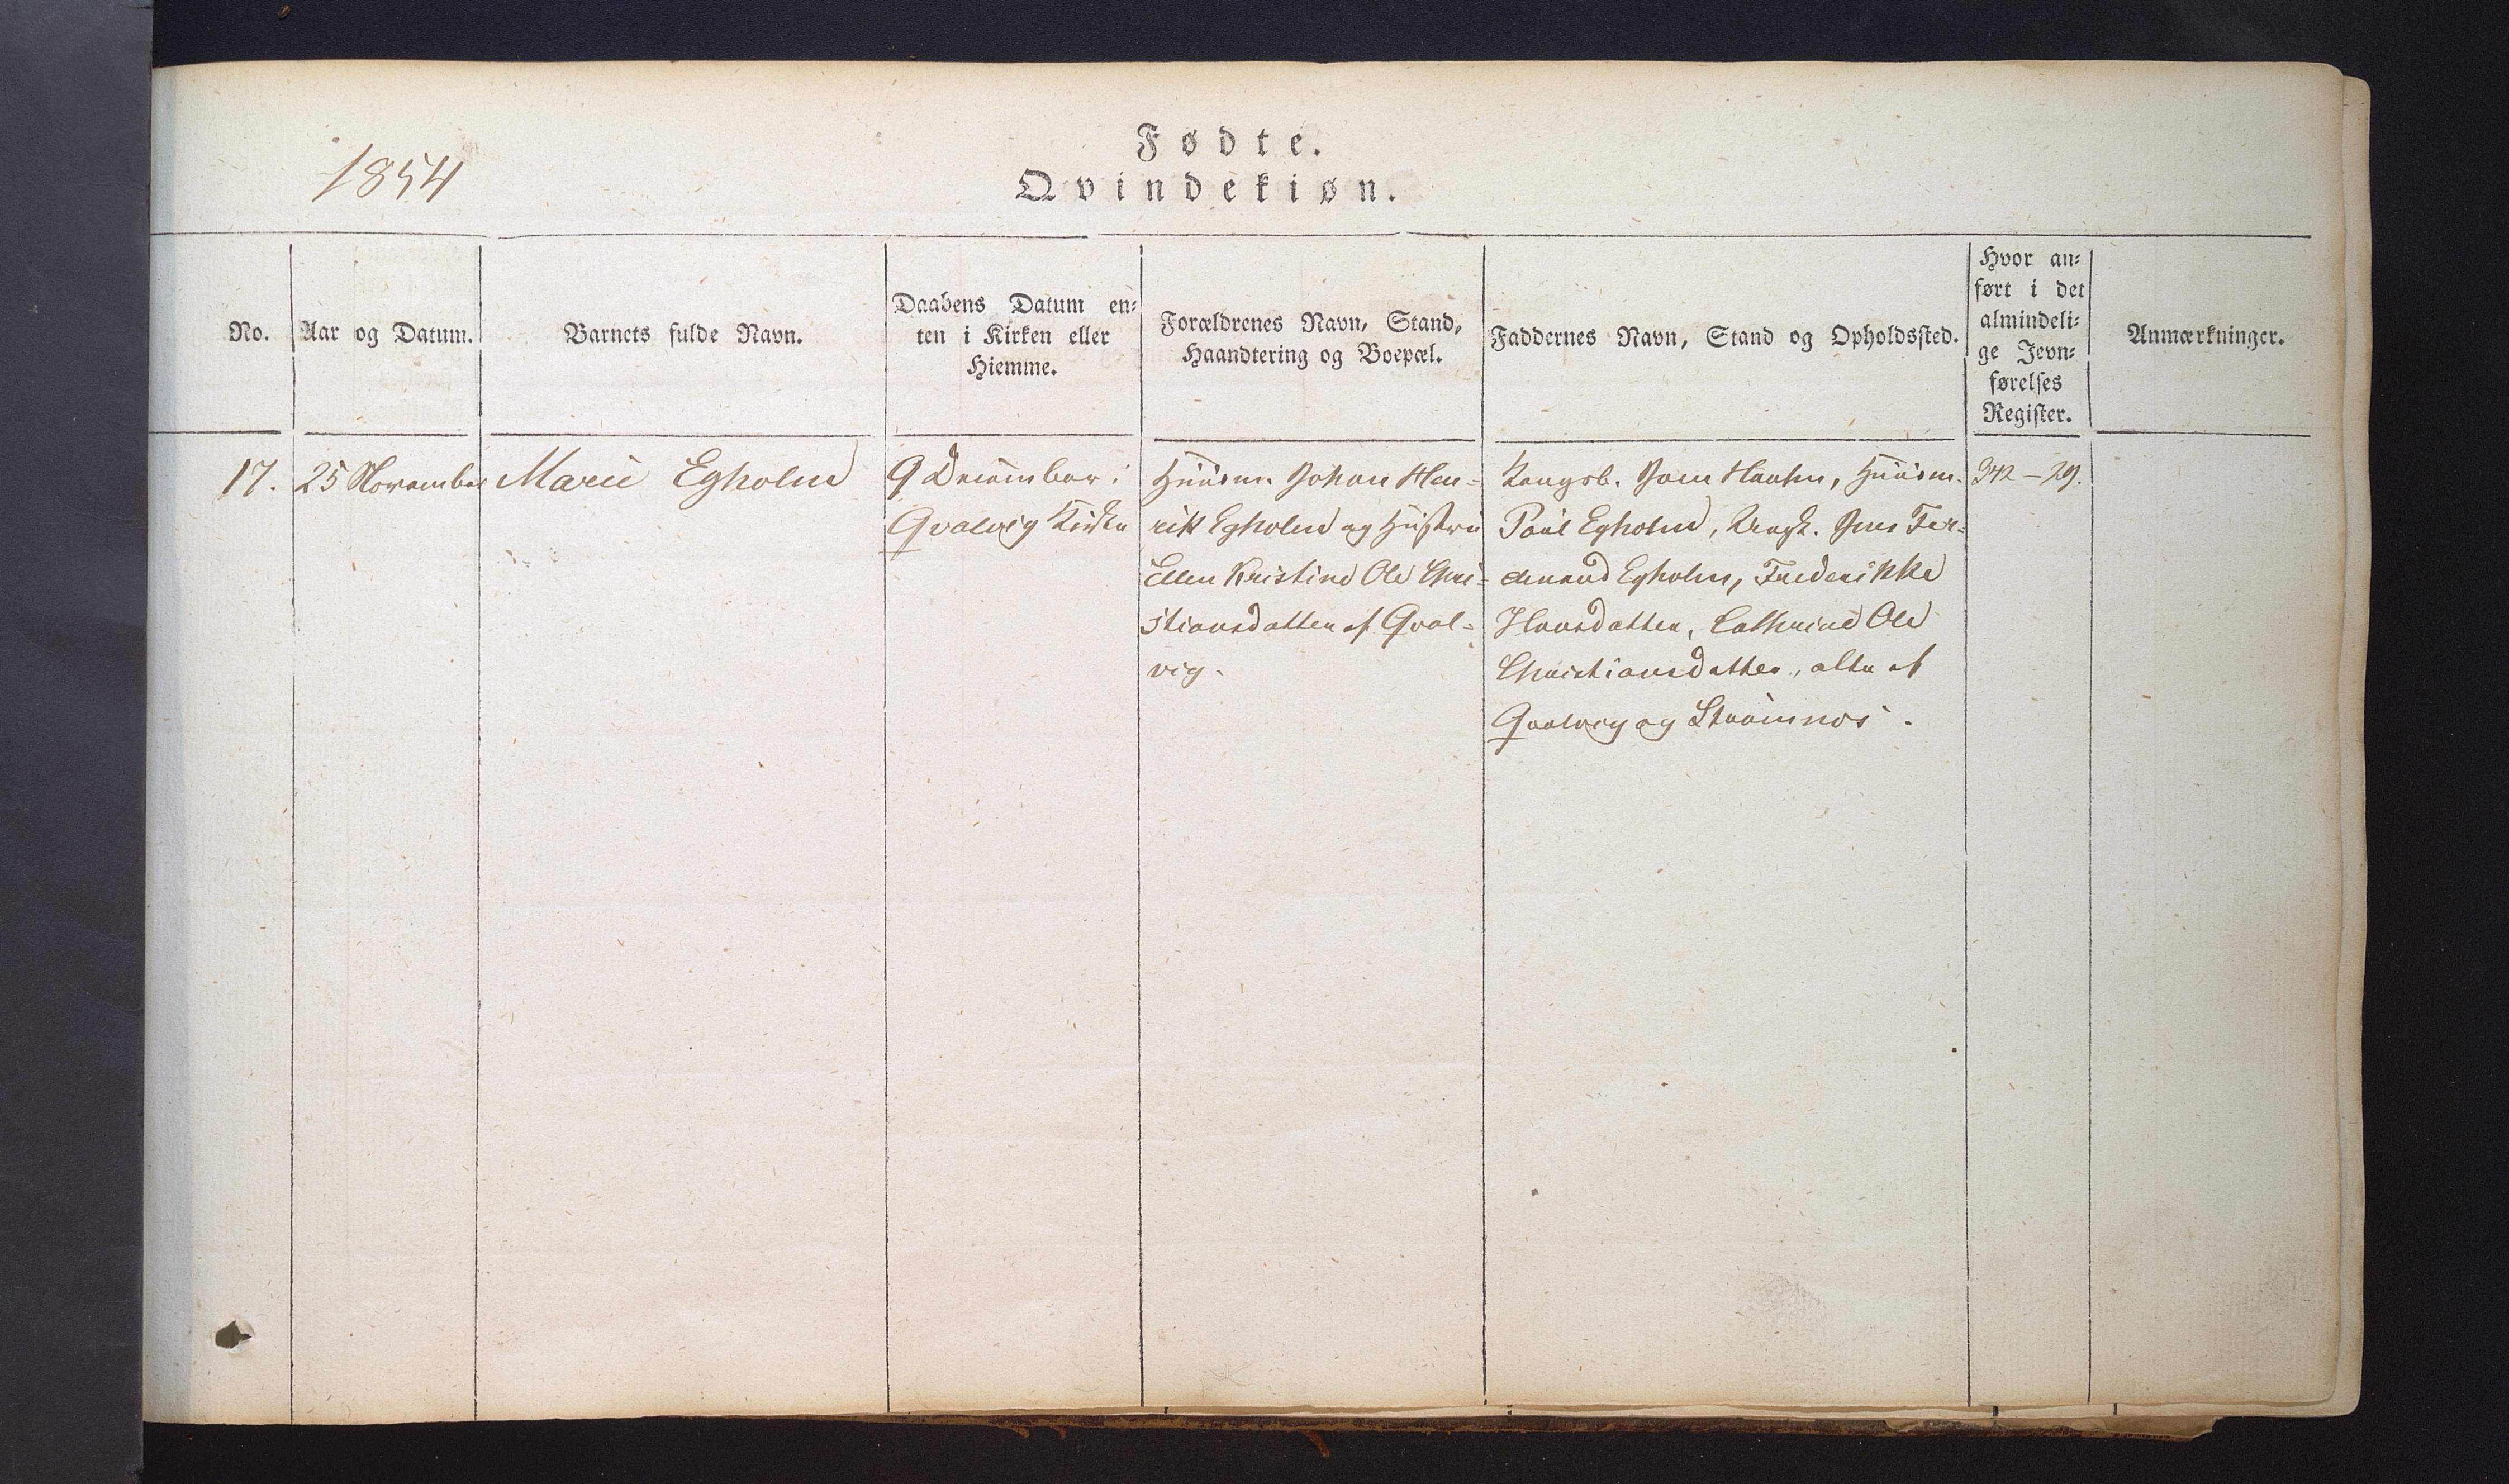 1854
Fødte.
Qvindekiøn.
No.
Aar og Datum.
Barnets fulde Navn.
Daabens Datum en⸗
ten i Kirken eller
Hiemme.
Forældrenes Navn, Stand,
Haandtering og Boepæl.
Faddernes Navn, Stand og Opholdssted.
Hvor an⸗
ført i det
almindeli⸗
ge Jevn⸗
førelses
Register.
Anmærkninger.
17.
25 November
Marie Egholm
9 December i
Qvalvig Kirke
Huusm. Johan Hen-
rik Egholm og Hustru
Ellen Kristine Ole Chri-
stiansdatter af Qval-
vig.
Kongsb. Joen Hansen, Huusm.
Paul Egholm, Ungk. Jens Fer-
dinand Egholm, Frederikke
Hansdatter, Cathrine Ole
Christiansdatter, alle af
Qvalvig og Strømnæs.
342 - 29.